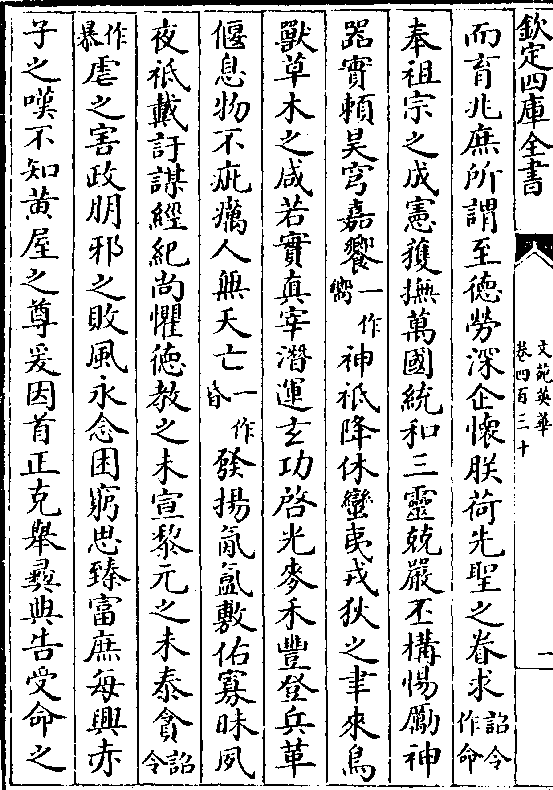 欽定四庫全書
文苑英華
卷四百三十
一
而育兆庶所謂至德勞深企懷朕荷先聖之眷求詔令作命
奉祖宗之成憲獲撫萬國統和三靈兢嚴丕構惕勵神
器實賴昊穹嘉饗一作嚮神祇降休蠻夷戎狄之聿來鳥
獸草木之咸若實真宰潛運玄功啓光麥禾豐登兵革
偃息物不疵癘人無夭亡一作昏發揚氤氳敷佑寡昧夙
夜祇戴訏謀經紀尚懼德教之未宣黎元之未泰貪詔令
作暴虐之害政朋邪之敗風永念困窮思臻富庶每興赤
子之嘆不知黃屋之尊爰因首正克舉彞典告受命之